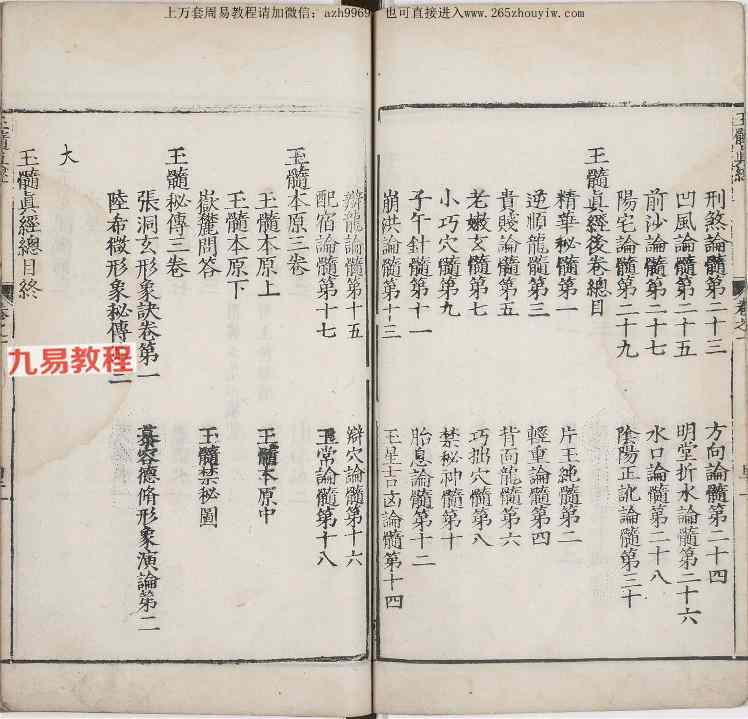 上万套周易教程请加微信：azh9969 也可直接进入www.265zhouyiw.com
刑煞論髓第二十三 方向論髓第二十四
凹風論髓第二十五 明堂折水論髓第二十六
前沙論髓第二十七 水口論髓第二十八
陽宅論髓第二十九 陰陽正訛論髓第三十
玉髓真經後卷總目
精華秘髓第一 片玉純髓第二
逆順龍髓第三 輕重論髓第四
貴賤論髓第五 背面龍髓第六
老嫩玄髓第七 巧拙穴髓第八
小巧穴髓第九 禁秘神髓第十
子午針髓第十一 胎息論髓第十二
崩洪論髓第十三 玉星吉凶論髓第十四
辯龍論髓第十五 辯穴論髓第十六
配宿論髓第十七 玉常論髓第十八
玉髓本原三卷
玉髓本原上 玉髓本原中
玉髓本原下
嶽麓問答 玉髓禁秘圖
玉髓秘傳三卷
張洞玄形象訣卷第一 慕容德脩形象演論第二
陸希微形象秘傳
大
玉髓真經總目終
九易教程